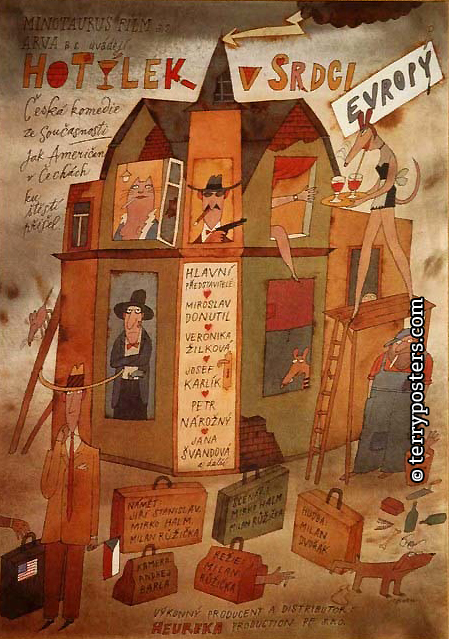 MINOTAURUS FILM
ARVA uvádějí
HOTÝLEK V SRDCI
EVROPÝ
Česká komedie
ze současnosti
jak Američan
v Čechách
ku
štěstí
přišel
HLAVNÍ
PŘEDSTAVITELÉ:
MIROSLAV
DONUTIL
VERONIKA
ŽILKOVÁ
JOSEF
KARLÍK
PETR
NÁROŽNÝ
JANA
ŠVANDOVÁ
a další
© terryposters.com
NÁMĚT:
JIŘÍ STANISLAV,
MIRKO HALM,
MILAN RŮŽIČKA
SCÉNÁŘ:
MIRKO HALM
MILAN RŮŽIČKA
HUDBA:
MILAN
DVOŘÁK
KAMERA:
ANDREJ
BARLA
REŽIE:
MILAN
RŮŽIČKA
VÝKONNÝ PRODUCENT A DISTRIBUTOR:
HEUREKA PRODUCTION PP S.R.O.